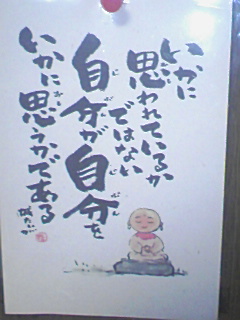 いかに
思われているか
ではない
自分が自分を
いかに思うかである